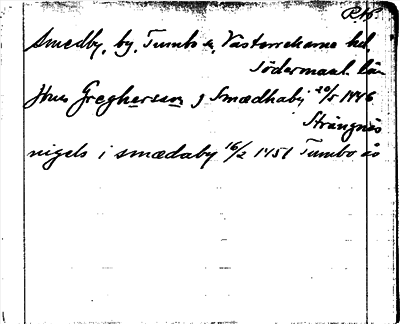 Smedby, by, Tumbo s, Västerrekarne hd,
Södermanl. län
Jhus Gregherson j Smædhaby 20/5 1446
Strängnäs
nigels i smædaby 16/2 1451 Tumbo